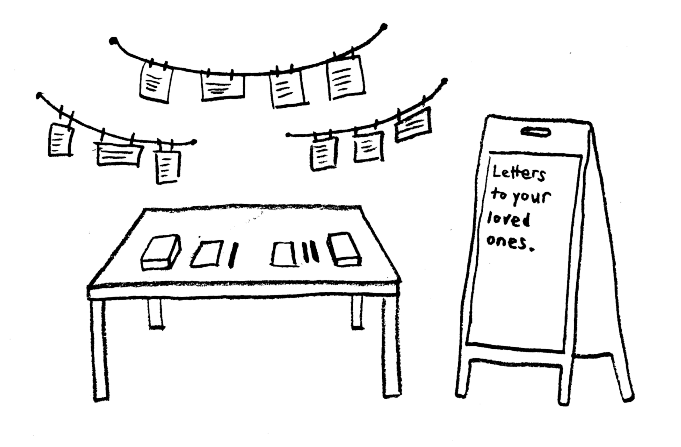 Letters
to your
loved
ones.